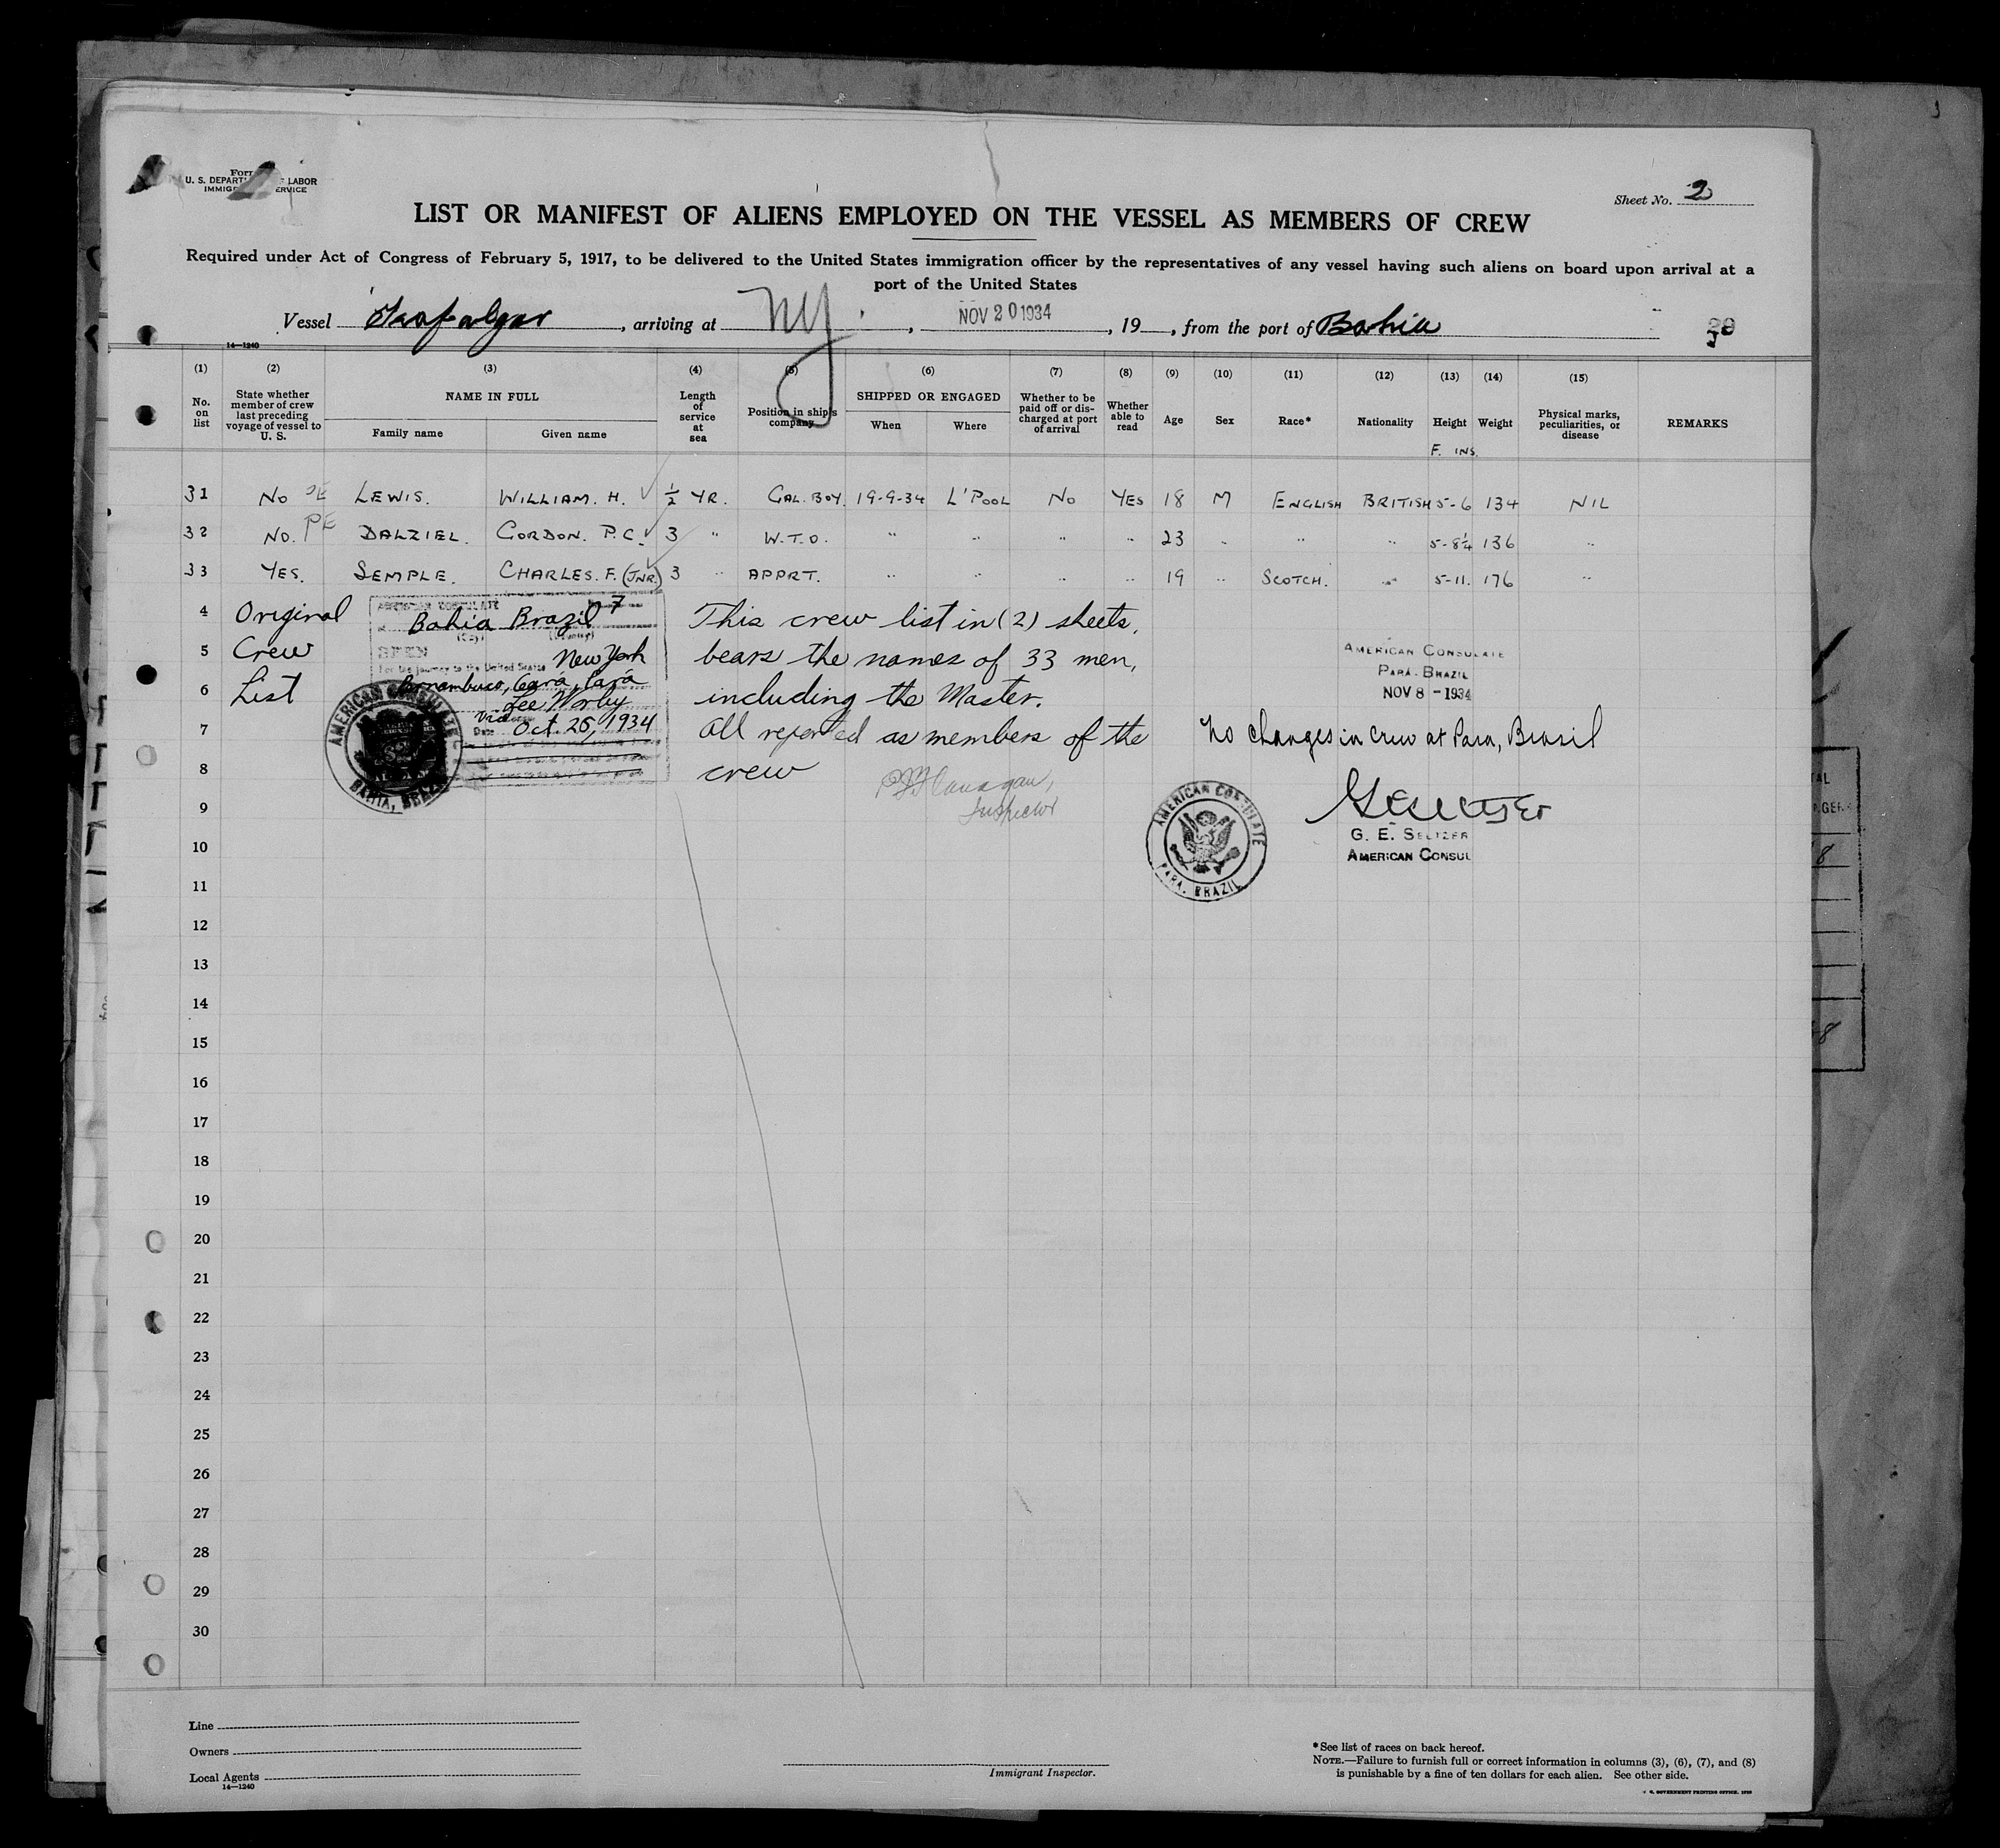 U. S. LABOR
Sheet No. 2
LIST OR MANIFEST OF ALIENS EMPLOYED ON THE VESSEL AS MEMBERS OF CREW
Required under Act of Congress of February 5, 1917, to be delivered to the United States immigration officer by the representatives of any vessel having such aliens on board upon arrival at a
port of the United States
Vessel Trafalgar, arriving at NY, NOV 20 1934, 19, from the port of Bahia
14—1240
(1) (2) (3) (4) (5) (6) (7) (8) (9) (10) (11) (12) (13) (14) (15)
No. on list
State whether member of crew last preceding voyage of vessel to U. S.
NAME IN FULL
Family name
Given name
Length of service at sea
Position in ship's company
SHIPPED OR ENGAGED
When
Where
Whether to be paid off or discharged at port of arrival
Whether able to read
Age
Sex
Race*
Nationality
Height
Weight
Physical marks, peculiarities, or disease
REMARKS
F. INS.
31 No LEWIS. WILLIAM. H. ½ YR. GAL. BOY. 19-9-34 L'POOL No YES 18 M ENGLISH BRITISH 5-6 134 NIL
32 No. PE DALZIEL. GORDON. P.C. 3 " W.T.O. " " " " 23 " " " 5-8¼ 136 "
33 YES. SEMPLE. CHARLES. F. (JNR.) 3 " APPRT. " " " " 19 " SCOTCH. " 5-11. 176 "
4 Original
5 Crew
6 List
7
8
9
10
11
12
13
14
15
16
17
18
19
20
21
22
23
24
25
26
27
28
29
30
AMERICAN CONSULATE
Bahia Brazil
SEEN
For the journey to the United States New York
Pernambuco, Ceará, Pará
Lee Worley
Via
Date Oct. 25, 1934
AMERICAN CONSULATE
BAHIA, BRAZIL
This crew list in (2) sheets,
bears the names of 33 men,
including the Master.
All reported as members of the
crew
Inspector
AMERICAN CONSULATE
PARÁ. BRAZIL
NOV 8 - 1934
No changes in crew at Para, Brasil
G. E. SELTZER
AMERICAN CONSUL
AMERICAN CONSULATE
PARA, BRAZIL
Line
Owners
Local Agents
14—1240
Immigrant Inspector.
*See list of races on back hereof.
NOTE.—Failure to furnish full or correct information in columns (3), (6), (7), and (8)
is punishable by a fine of ten dollars for each alien. See other side.